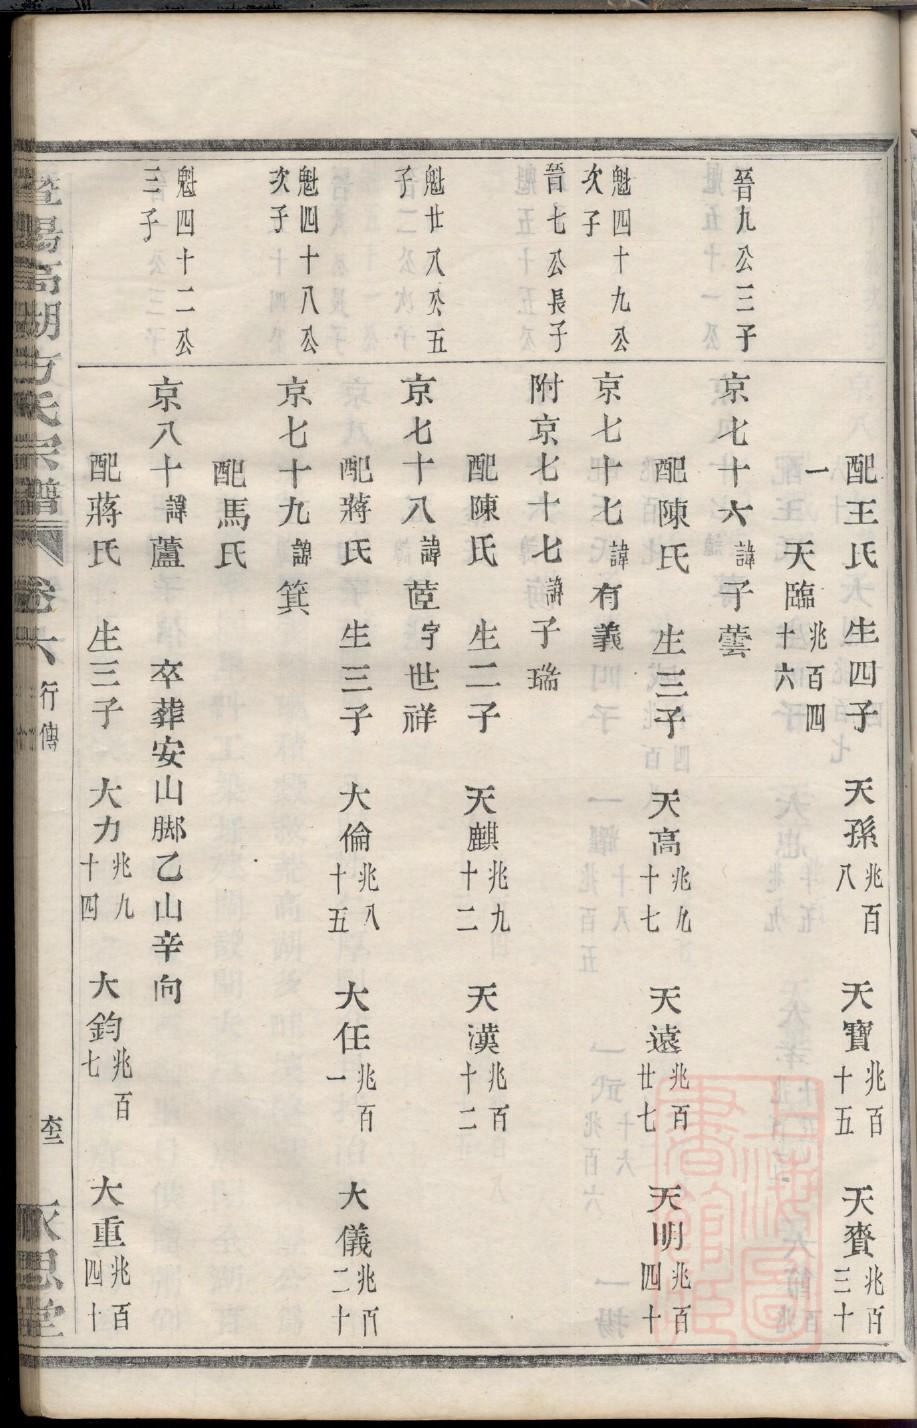 配王氏 生四子 天孫兆百八 天寶兆百十五 天賚兆百三十
一 天臨兆百四十六
晉九公三子 京七十六諱子蕓
配陳氏 生三子 天高兆九十七 天遠兆百廿七 天明兆百四十
魁四十九公次子 京七十七諱有義
晉七公長子 附京七十七諱子瑞
配陳氏 生二子 天麒兆九十二 天漢兆百十二
魁廿八公五子 京七十八諱荁字世祥
配蔣氏 生三子 大倫兆八十五 大任兆百一 大儀兆百二十
魁四十八公次子 京七十九諱箕
配馬氏
魁四十二公三子 京八十諱蘆 卒葬安山脚乙山辛向
配蔣氏 生三子 大力兆九十四 大鈞兆百七 大重兆百四十
暨陽高湖方氏宗譜 卷六 行傳